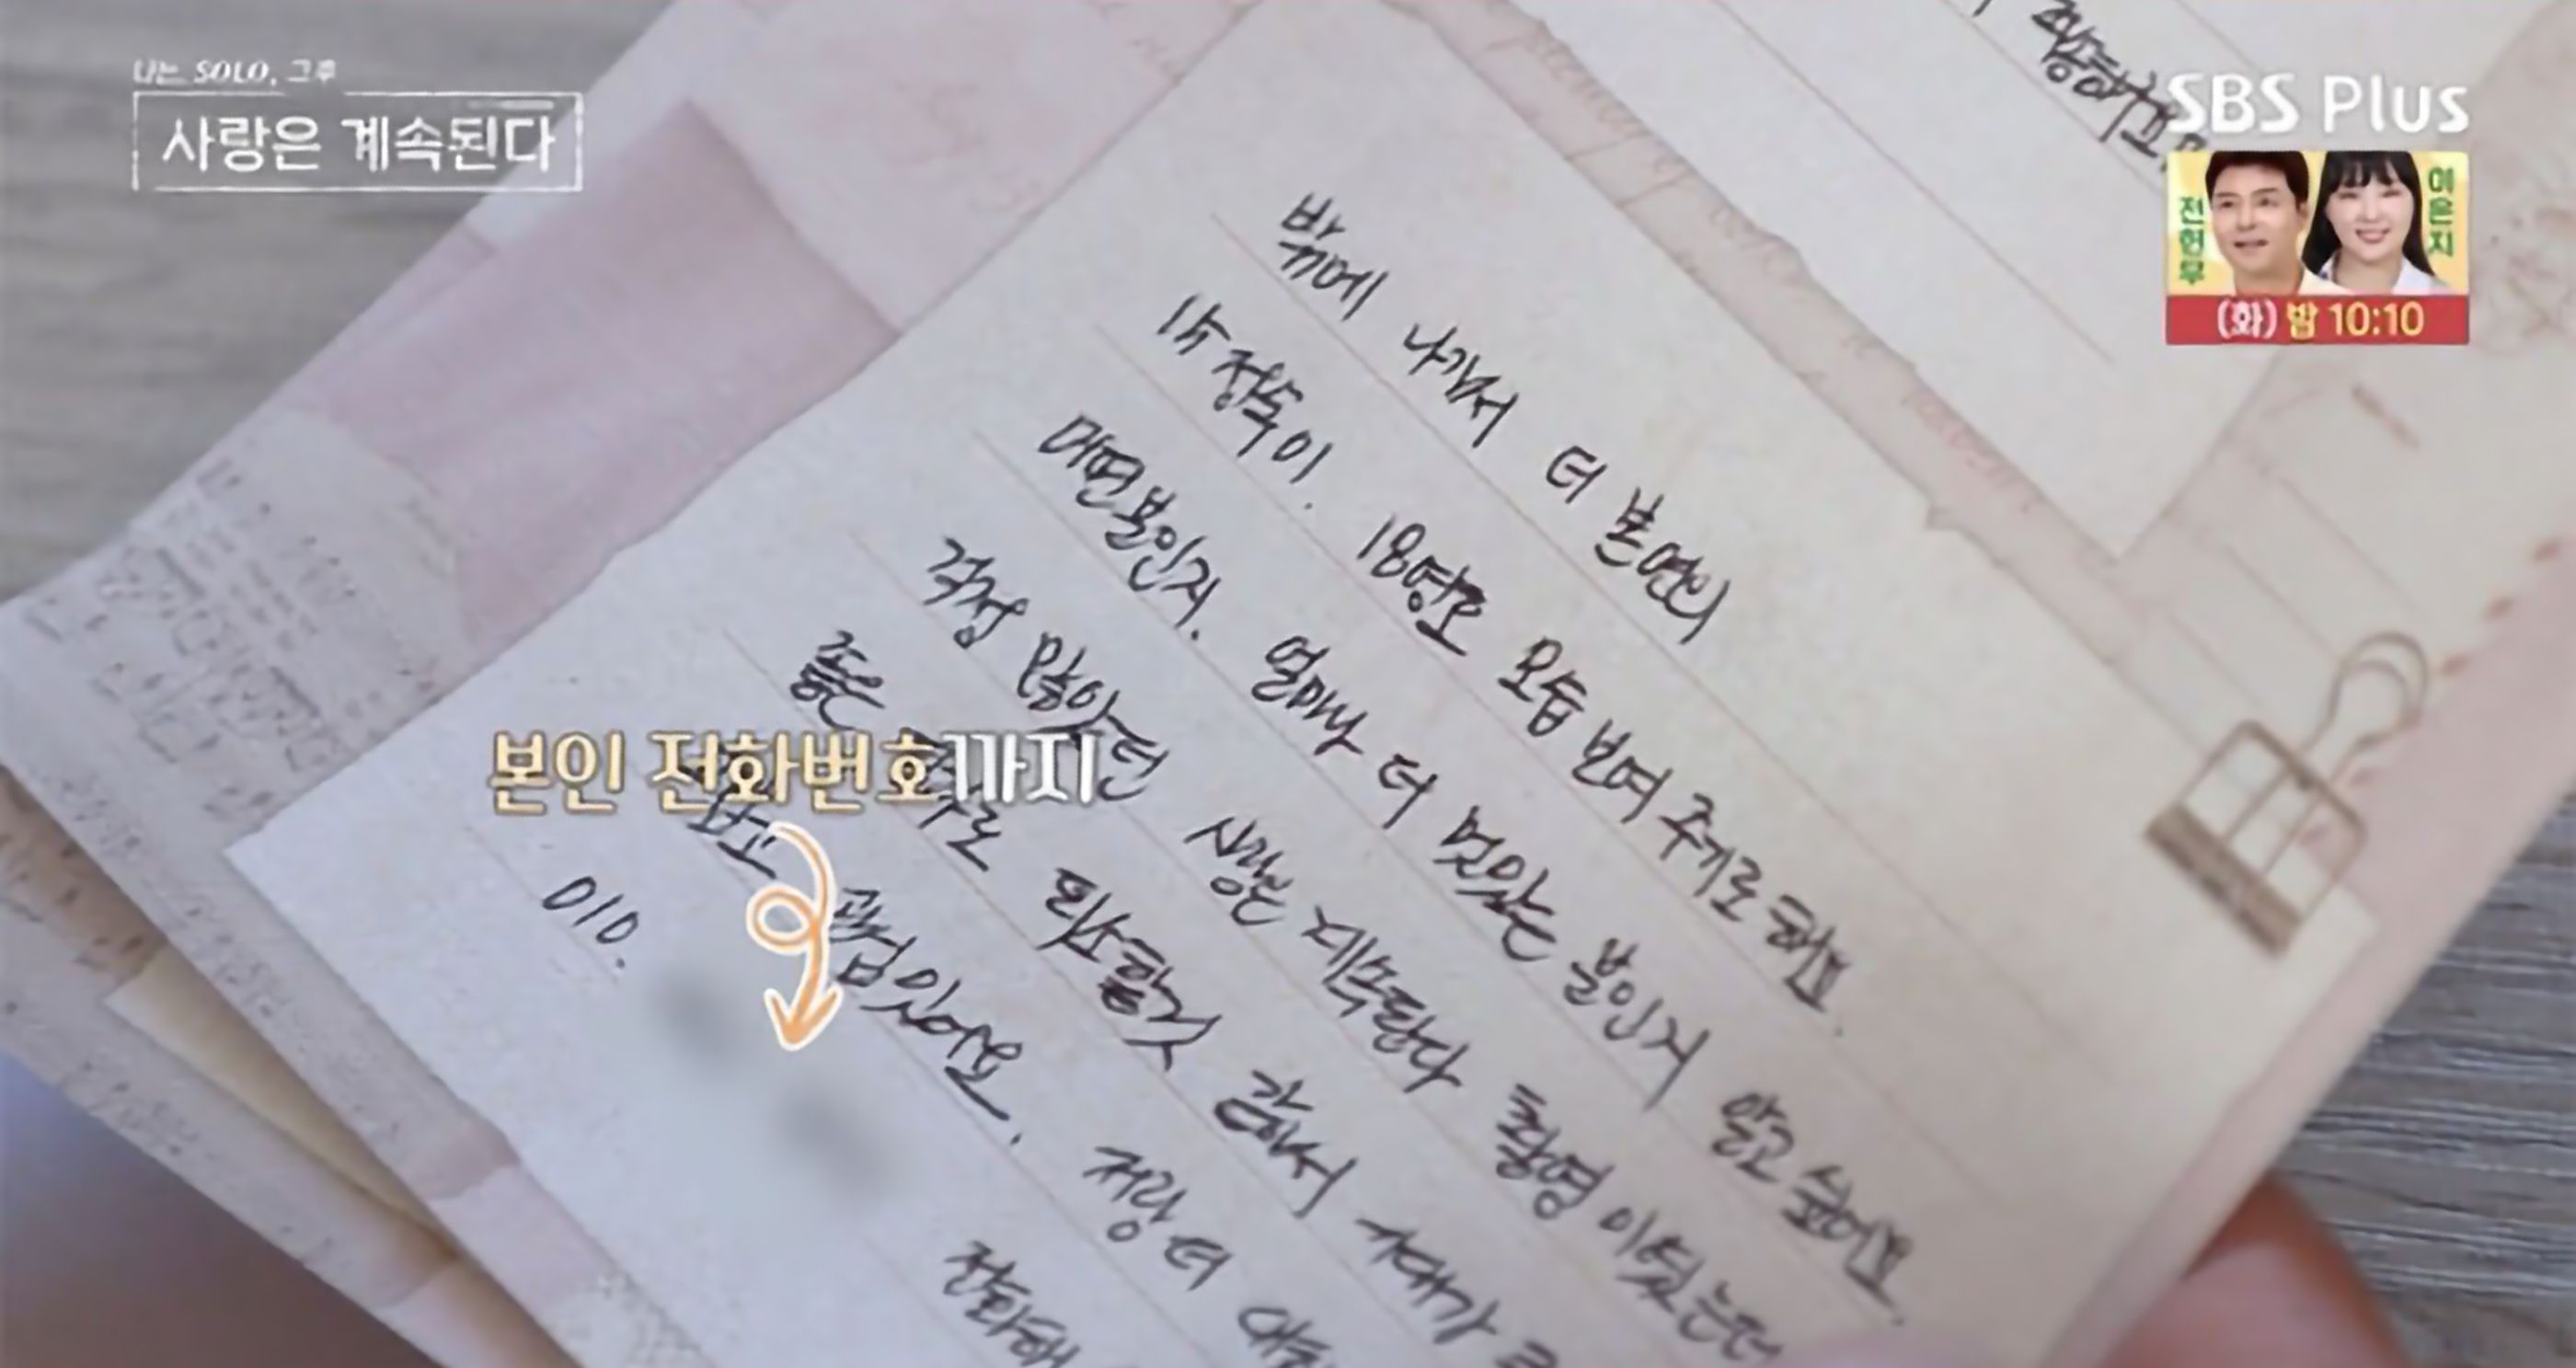 나는 SOLO, 그후
사랑은 계속된다
SBS Plus
전현무
이은지
(화) 밤 10:10
밖에 나가서 더 본연의
정숙이. 18영호 모습 보여 주기로 해요.
어떤 분인지. 얼마나 더 멋있는 분인지 알고 싶어요.
걱정 많았던 사랑은 계속된다 촬영이었는데
좋은 로 퇴소할것 같아서 제가
있어요. 저랑 더
본인 전화번호까지
010.
전화해